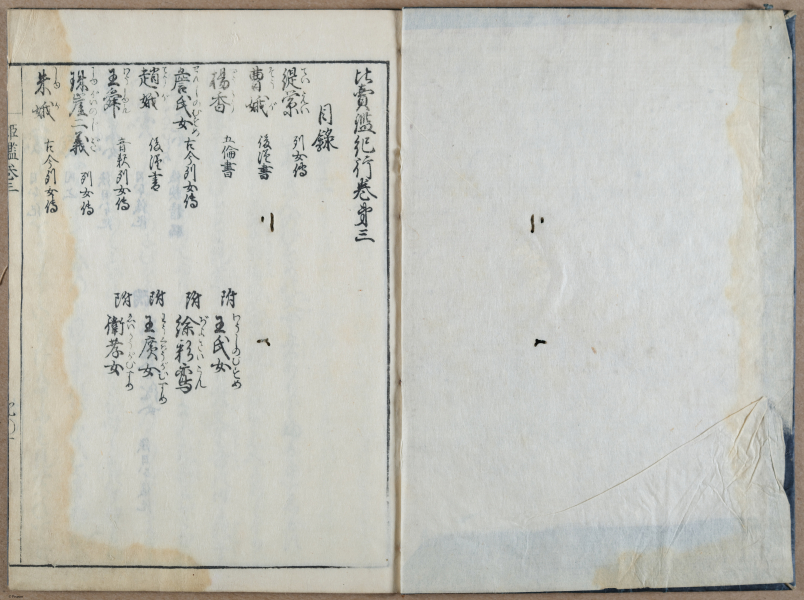 比賣鑑紀行巻第三
目録
緹縈 列女傳
曹娥 後漢書
楊香 五倫書 附 王氏女
詹氏女 古今列女傳 附 徐彩鸞
趙娥 後漢書 附 王廣女
王舜 古今列女傳 附 衛孝女
珠崖二義 列女傳
朱娥 古今列女傳
比賣鑑巻三